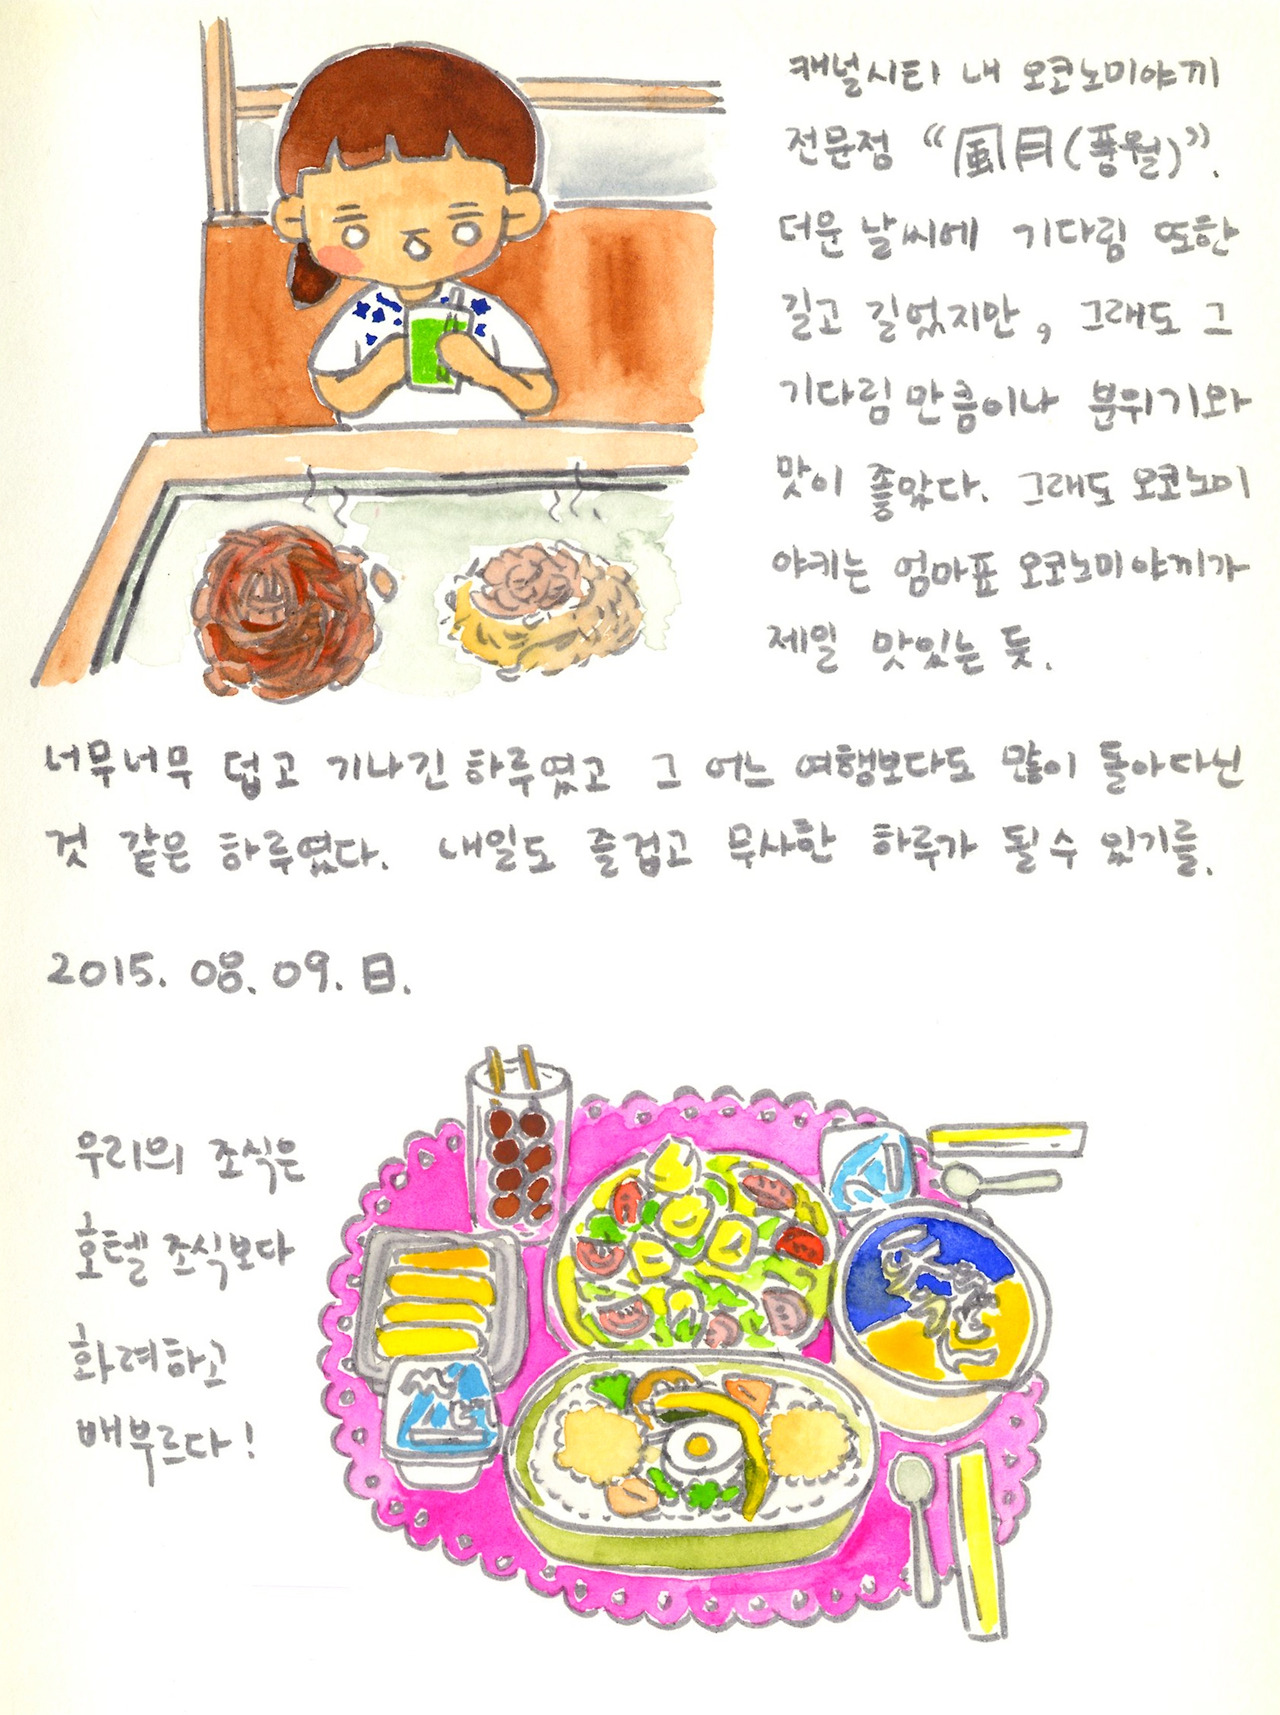 캐널시티 내 오코노미야끼
전문점 “風月(풍월)”.
더운 날씨에 기다림 또한
길고 길었지만, 그래도 그
기다림만큼이나 분위기와
맛이 좋았다. 그래도 오코노미
야키는 엄마표 오코노미야끼가
제일 맛있는 듯.
너무너무 덥고 기나긴 하루였고 그 어느 여행보다도 많이 돌아다닌
것 같은 하루였다. 내일도 즐겁고 무사한 하루가 될 수 있기를.
2015. 08. 09. 日.
우리의 조식은
호텔 조식보다
화려하고
배부르다!